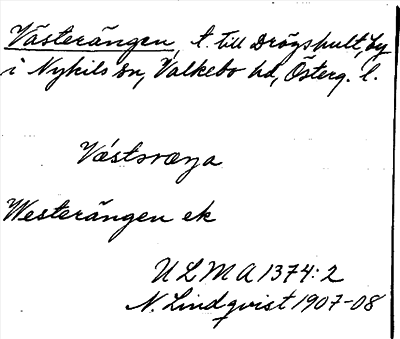 Västerängen, t. till Drögshult, by
i Nykils sn, Valkebo hd, Österg. l.
Västsræŋa
Westerängen ek
ULMA 1374:2
N. Lindqvist 1907-08